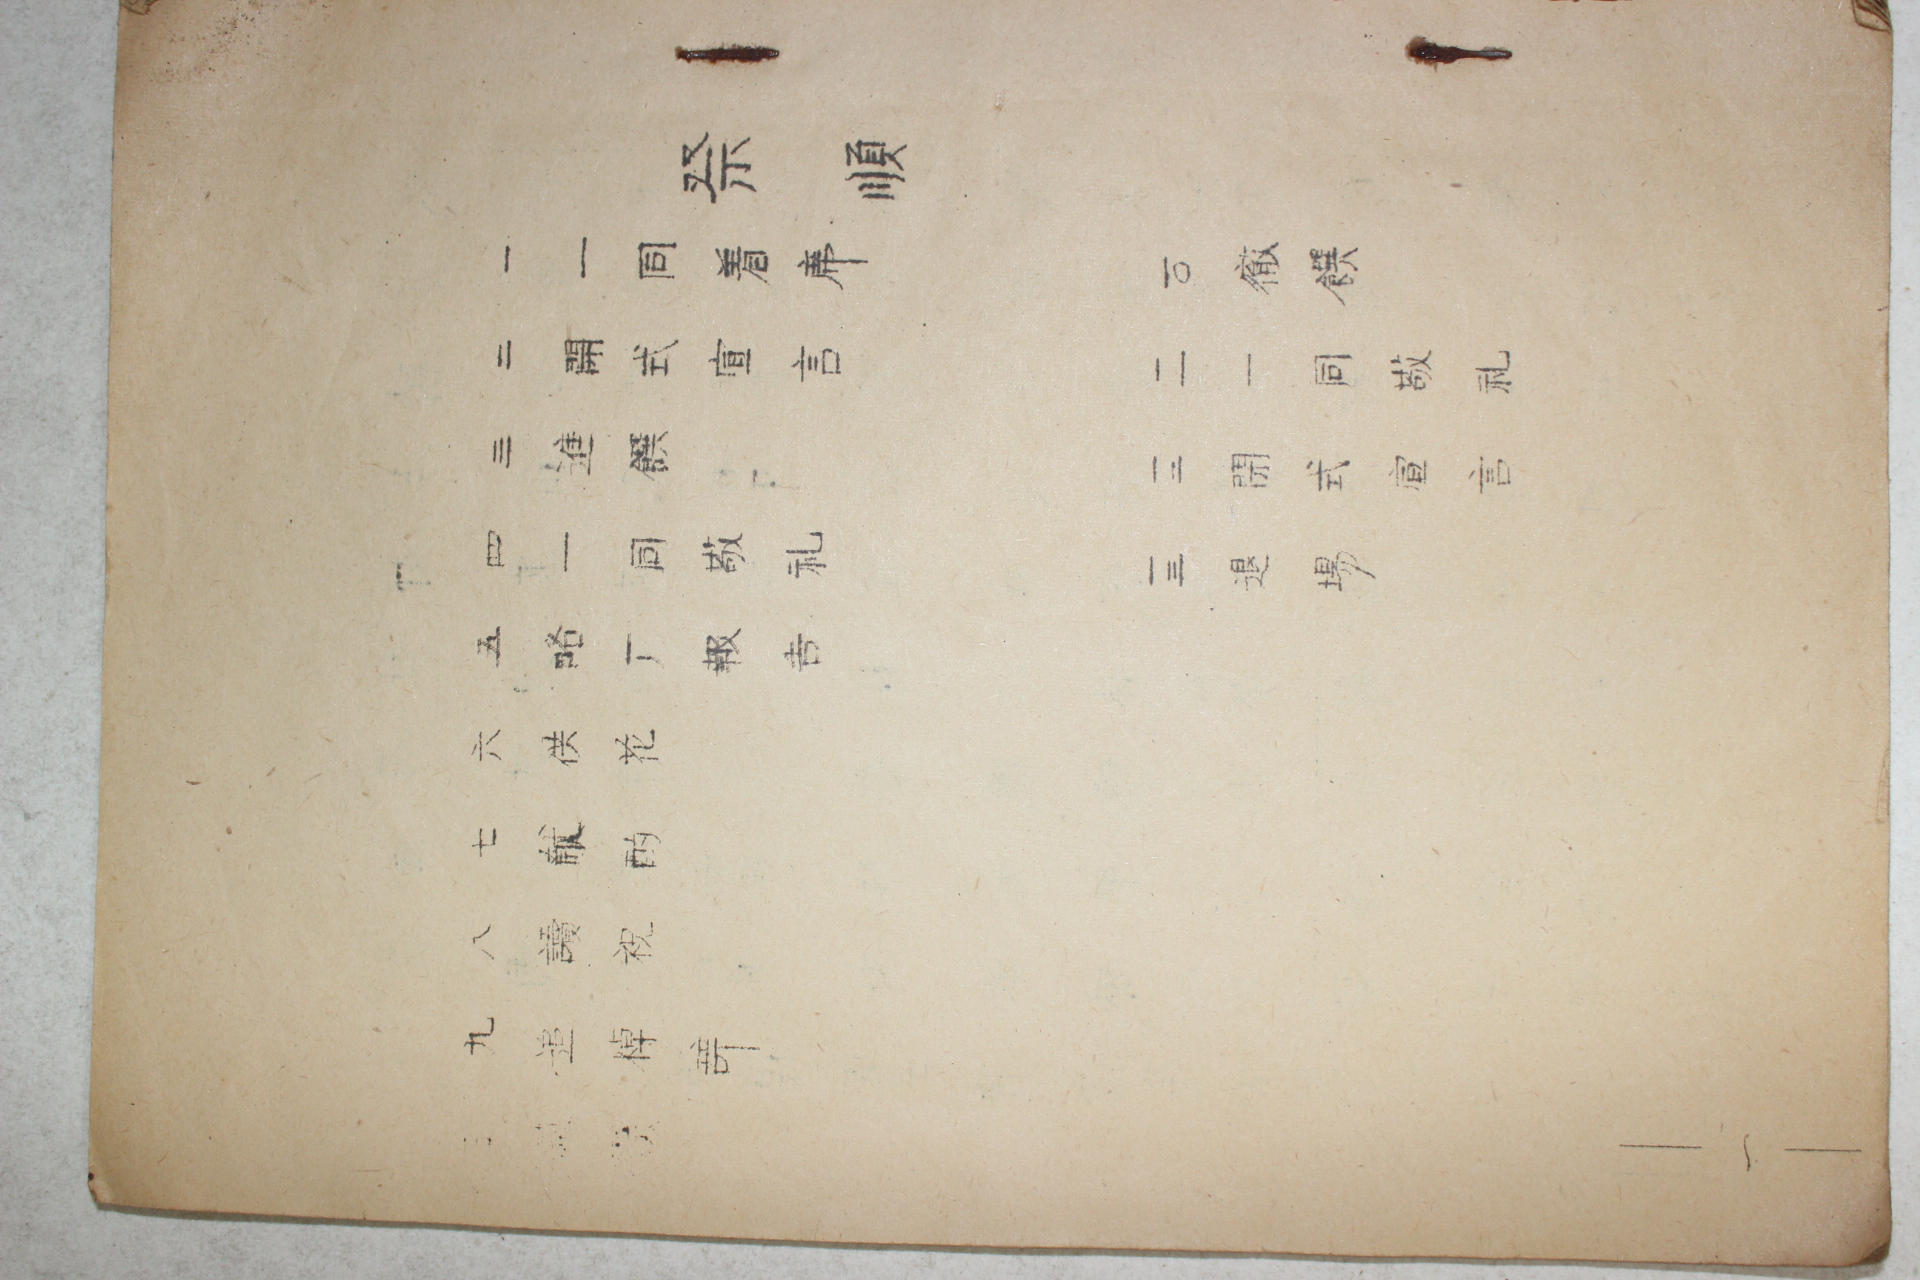 祭順
一 一同着席
二 開式宣言
三 進饌
四 一同敬礼
五 略厂報告
六 供花
七 献酌
八 讀祝
九 追悼辞
一〇 徹饌
一一 一同敬礼
一二 閉式宣言
一三 退場